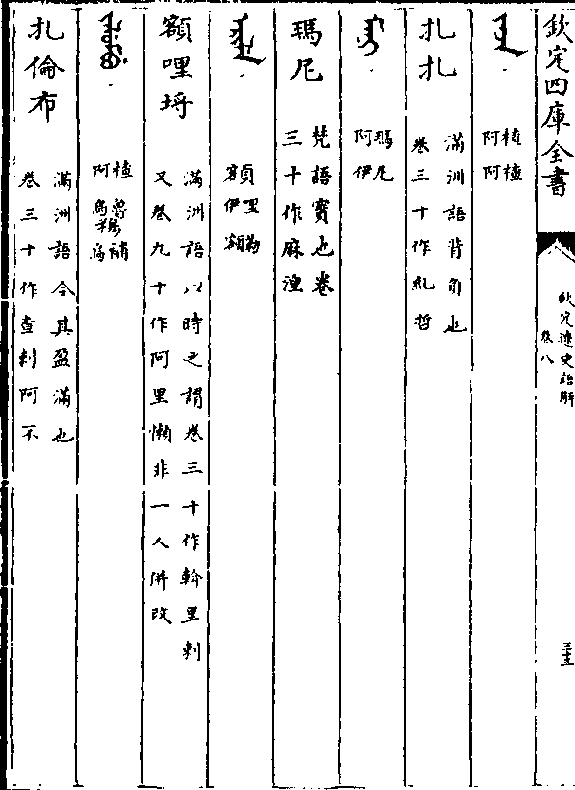 欽定四庫全書
欽定遼史語解
卷八
ᠵᠠᠵᠠ
楂阿 楂阿
扎扎
滿洲語背負也
卷三十作札哲
ᠮᠠᠨᡳ
瑪阿 尼伊
瑪尼
梵語寶也卷
三十作麻湼
ᡝᡵᡳᠯᡝ
額 哩伊 勒額
額哩埒
滿洲語以時之謂卷三十作斡里剌
又卷九十作阿里懶非一人併改
ᠵᠠᠯᡠᠮᠪᡠ
楂阿 魯烏穆 補烏
扎倫布
滿洲語令其盈滿也
卷三十作查剌阿不